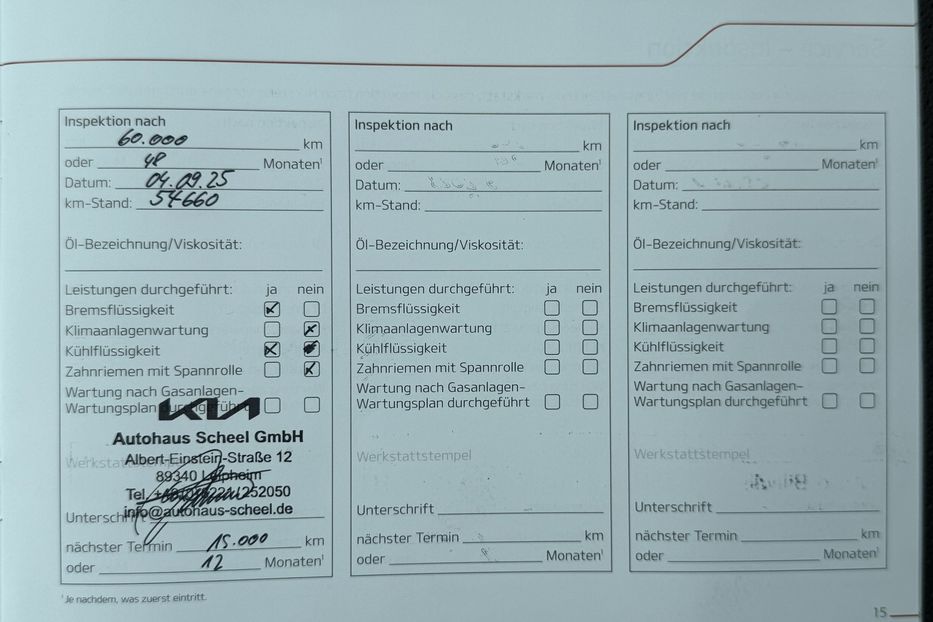 Inspektion nach
60.000 km
oder 48 Monaten¹
Datum: 04.09.25
km-Stand: 54660
Öl-Bezeichnung/Viskosität:
Leistungen durchgeführt: ja nein
Bremsflüssigkeit
Klimaanlagenwartung
Kühlflüssigkeit
Zahnriemen mit Spannrolle
Wartung nach Gasanlagen-
Wartungsplan durchgeführt
KIA
Autohaus Scheel GmbH
Albert-Einstein-Straße 12
Werkstattstempel
89340 Leipheim
Tel. 252050
info@autohaus-scheel.de
Unterschrift
nächster Termin 15.000 km
oder 12 Monaten¹
¹Je nachdem, was zuerst eintritt.
Inspektion nach
km
oder Monaten¹
Datum:
km-Stand:
Öl-Bezeichnung/Viskosität:
Leistungen durchgeführt: ja nein
Bremsflüssigkeit
Klimaanlagenwartung
Kühlflüssigkeit
Zahnriemen mit Spannrolle
Wartung nach Gasanlagen-
Wartungsplan durchgeführt
Werkstattstempel
Unterschrift
nächster Termin km
oder Monaten¹
Inspektion nach
km
oder Monaten¹
Datum:
km-Stand:
Öl-Bezeichnung/Viskosität:
Leistungen durchgeführt: ja nein
Bremsflüssigkeit
Klimaanlagenwartung
Kühlflüssigkeit
Zahnriemen mit Spannrolle
Wartung nach Gasanlagen-
Wartungsplan durchgeführt
Werkstattstempel
Unterschrift
nächster Termin km
oder Monaten¹
15